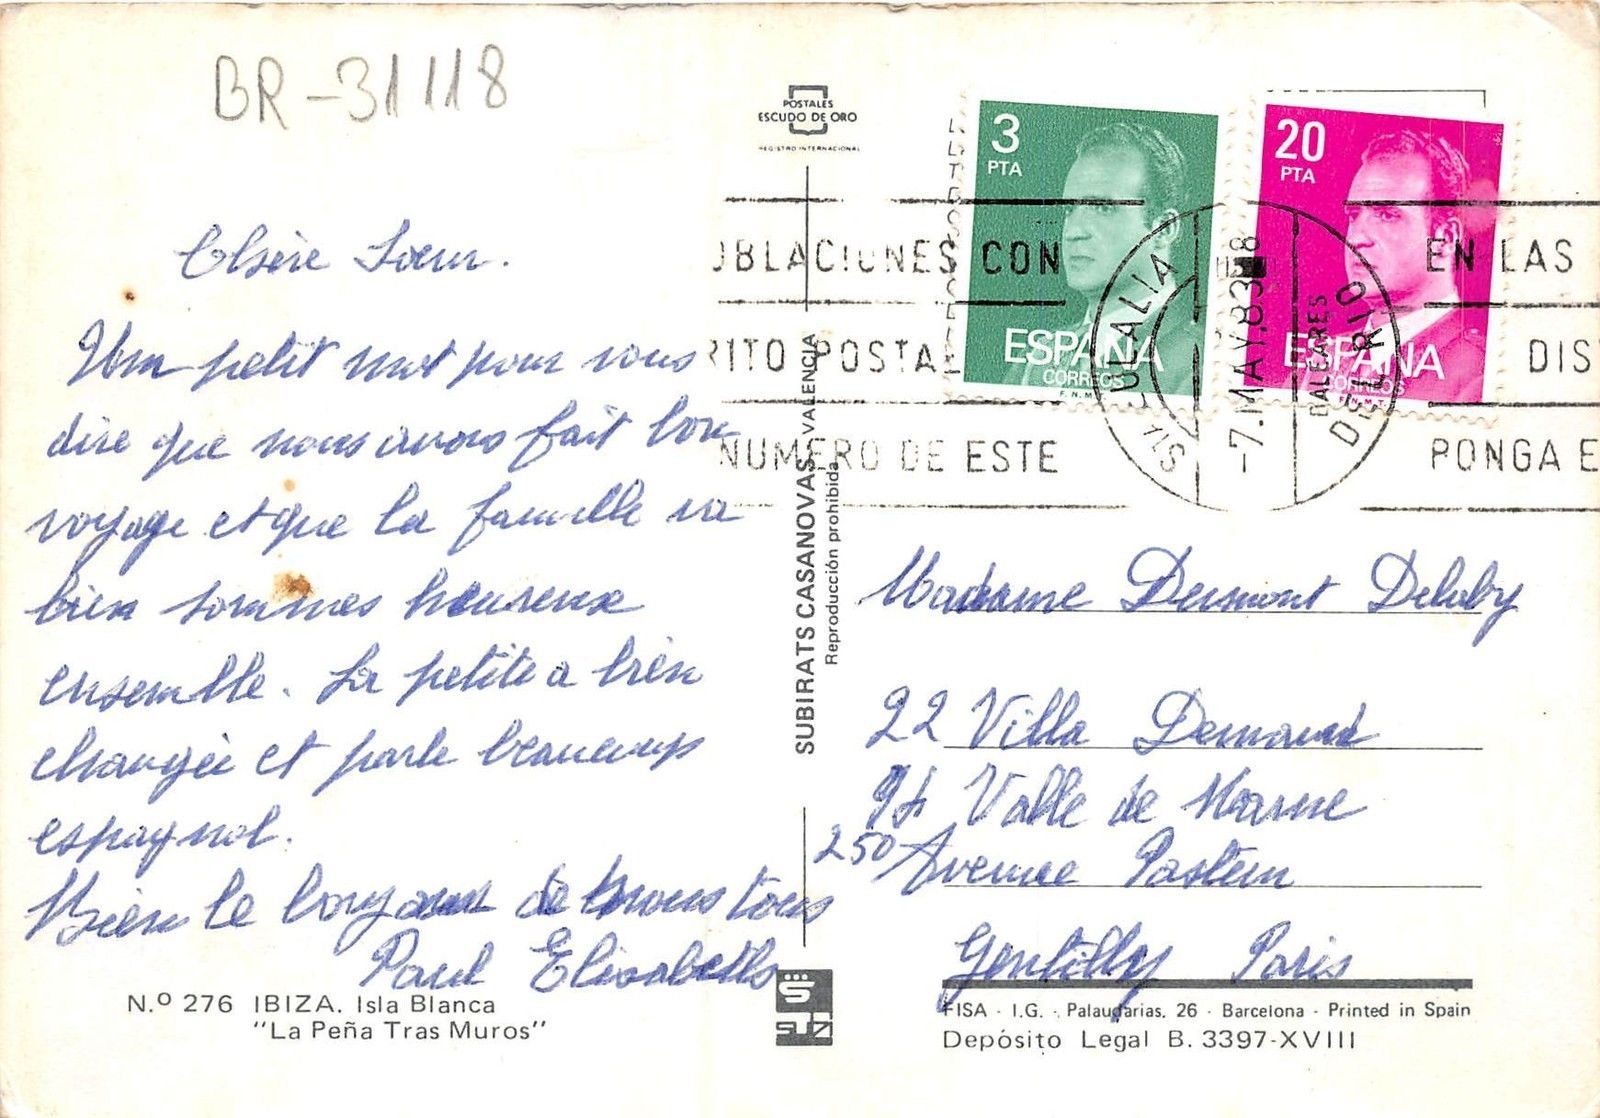 BR-31118
POSTALES
ESCUDO DE ORO
REGISTRO INTERNACIONAL
3
PTA
ESPAÑA
CORREOS
F.N.M.
20
PTA
ESPAÑA
CORREOS
F.N.M.T.
OBLACIONES CON
RITO POSTAL
NUMERO DE ESTE
EULALIA DEL RIO
-7.MAY.83
BALEARES
EN LAS
DIS
PONGA E
Chère Soeur.
Un petit mot pour vous
dire que nous avons fait bon
voyage et que la famille va
bien sommes heureux
ensemble. La petite a bien
changée et parle beaucoup
espagnol.
Bien le bonjour de nous tous
Paul Elisabeth
Madame Dumont Delaby
22 Villa
94 Valle de Marne
250 Avenue Pasteur
Gentilly Paris
SUBIRATS CASANOVAS, VALENCIA
Reproducción prohibida
N.º 276 IBIZA. Isla Blanca
"La Peña Tras Muros"
FISA - I.G. - Palaudarias, 26 - Barcelona - Printed in Spain
Depósito Legal B. 3397-XVIII